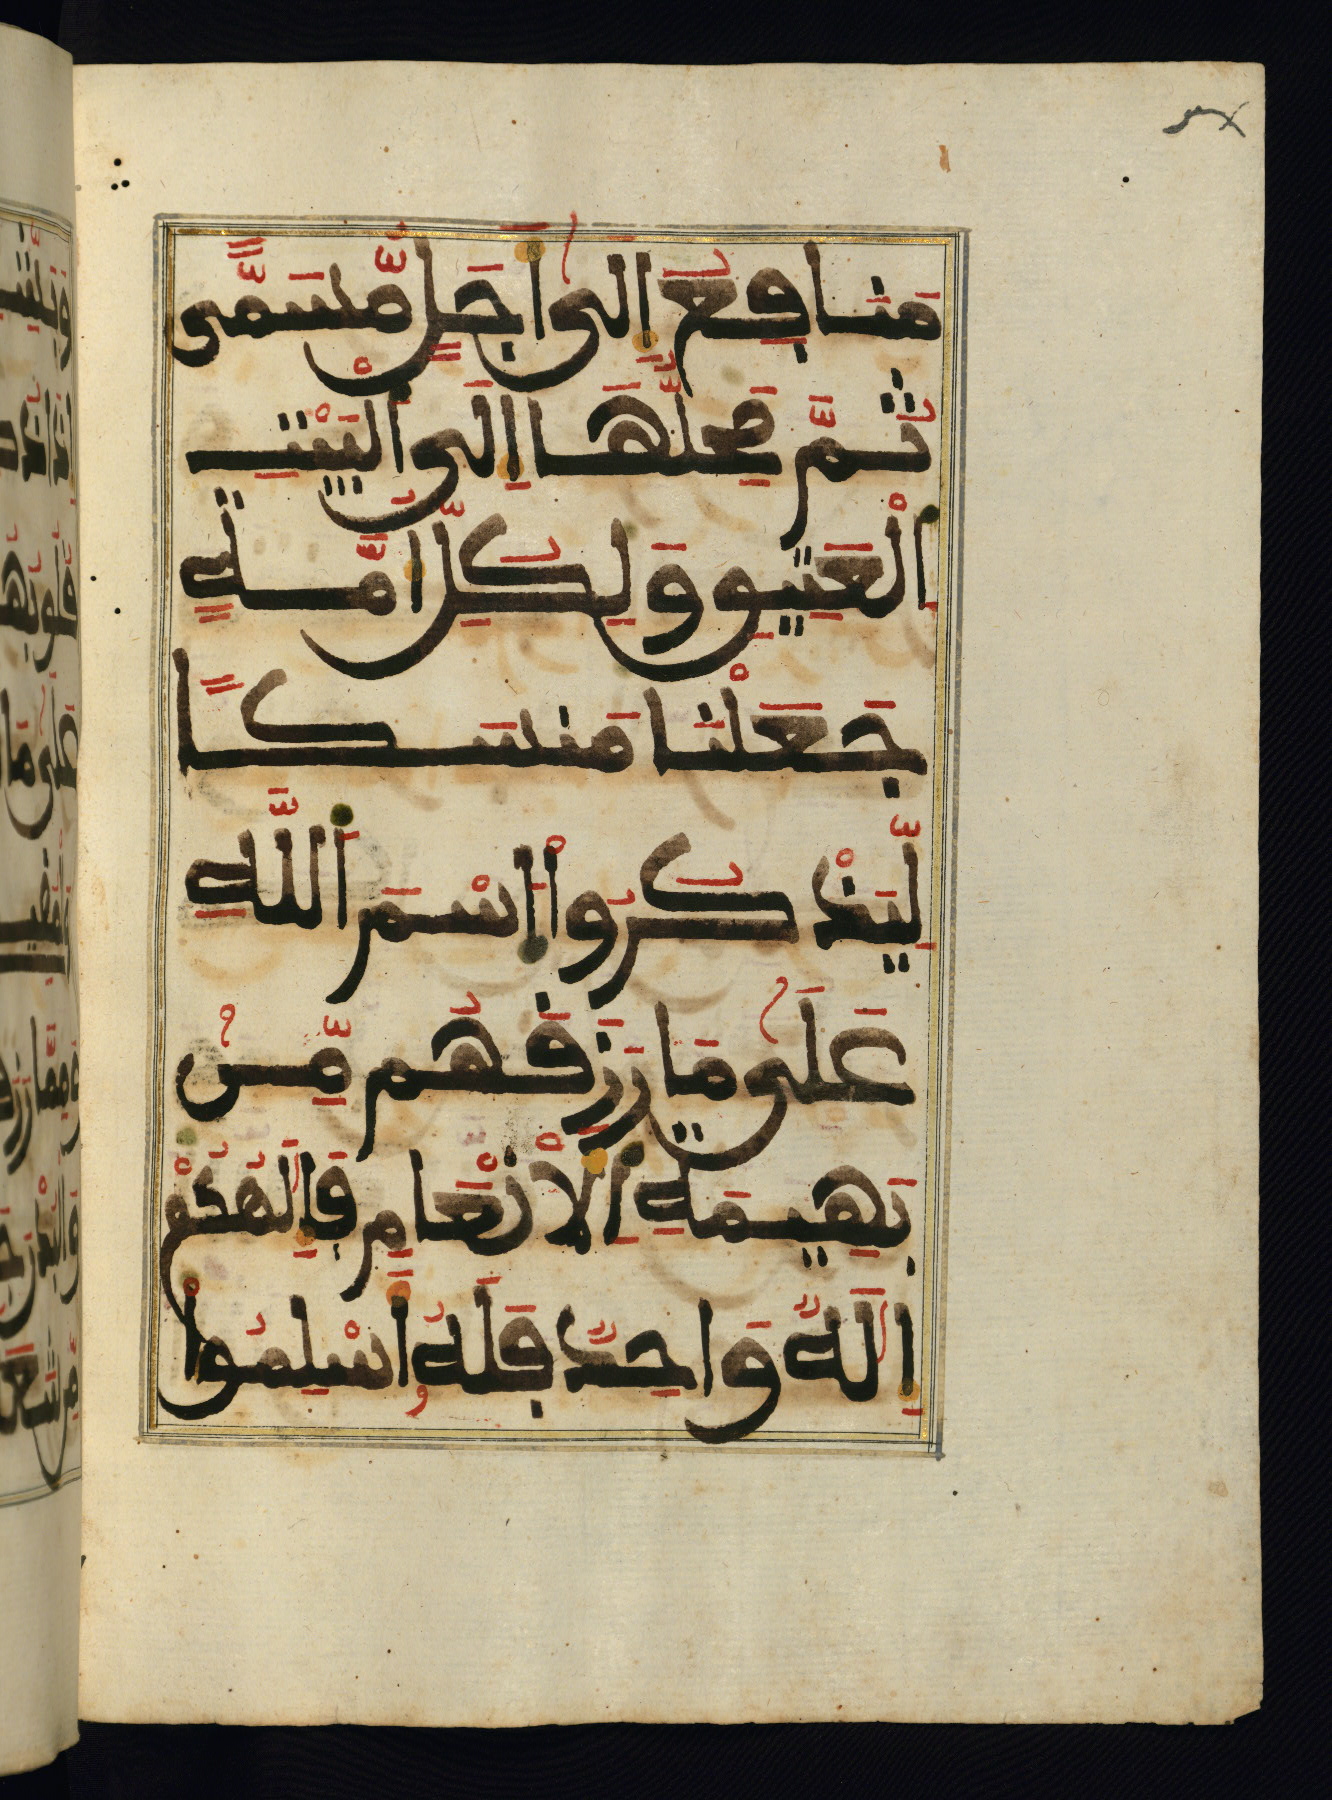 مَنَافِعُ إِلَىٰ أَجَلٍ مُّسَمًّى
ثُمَّ مَحِلُّهَا إِلَى ٱلْبَيْتِ
ٱلْعَتِيقِ وَلِكُلِّ أُمَّةٍ
جَعَلْنَا مَنسَكًا
لِّيَذْكُرُوا۟ ٱسْمَ ٱللَّهِ
عَلَىٰ مَا رَزَقَهُم مِّنْ
بَهِيمَةِ ٱلْأَنْعَامِ فَإِلَٰهُكُمْ
إِلَٰهٌ وَاحِدٌ فَلَهُ أَسْلِمُوا